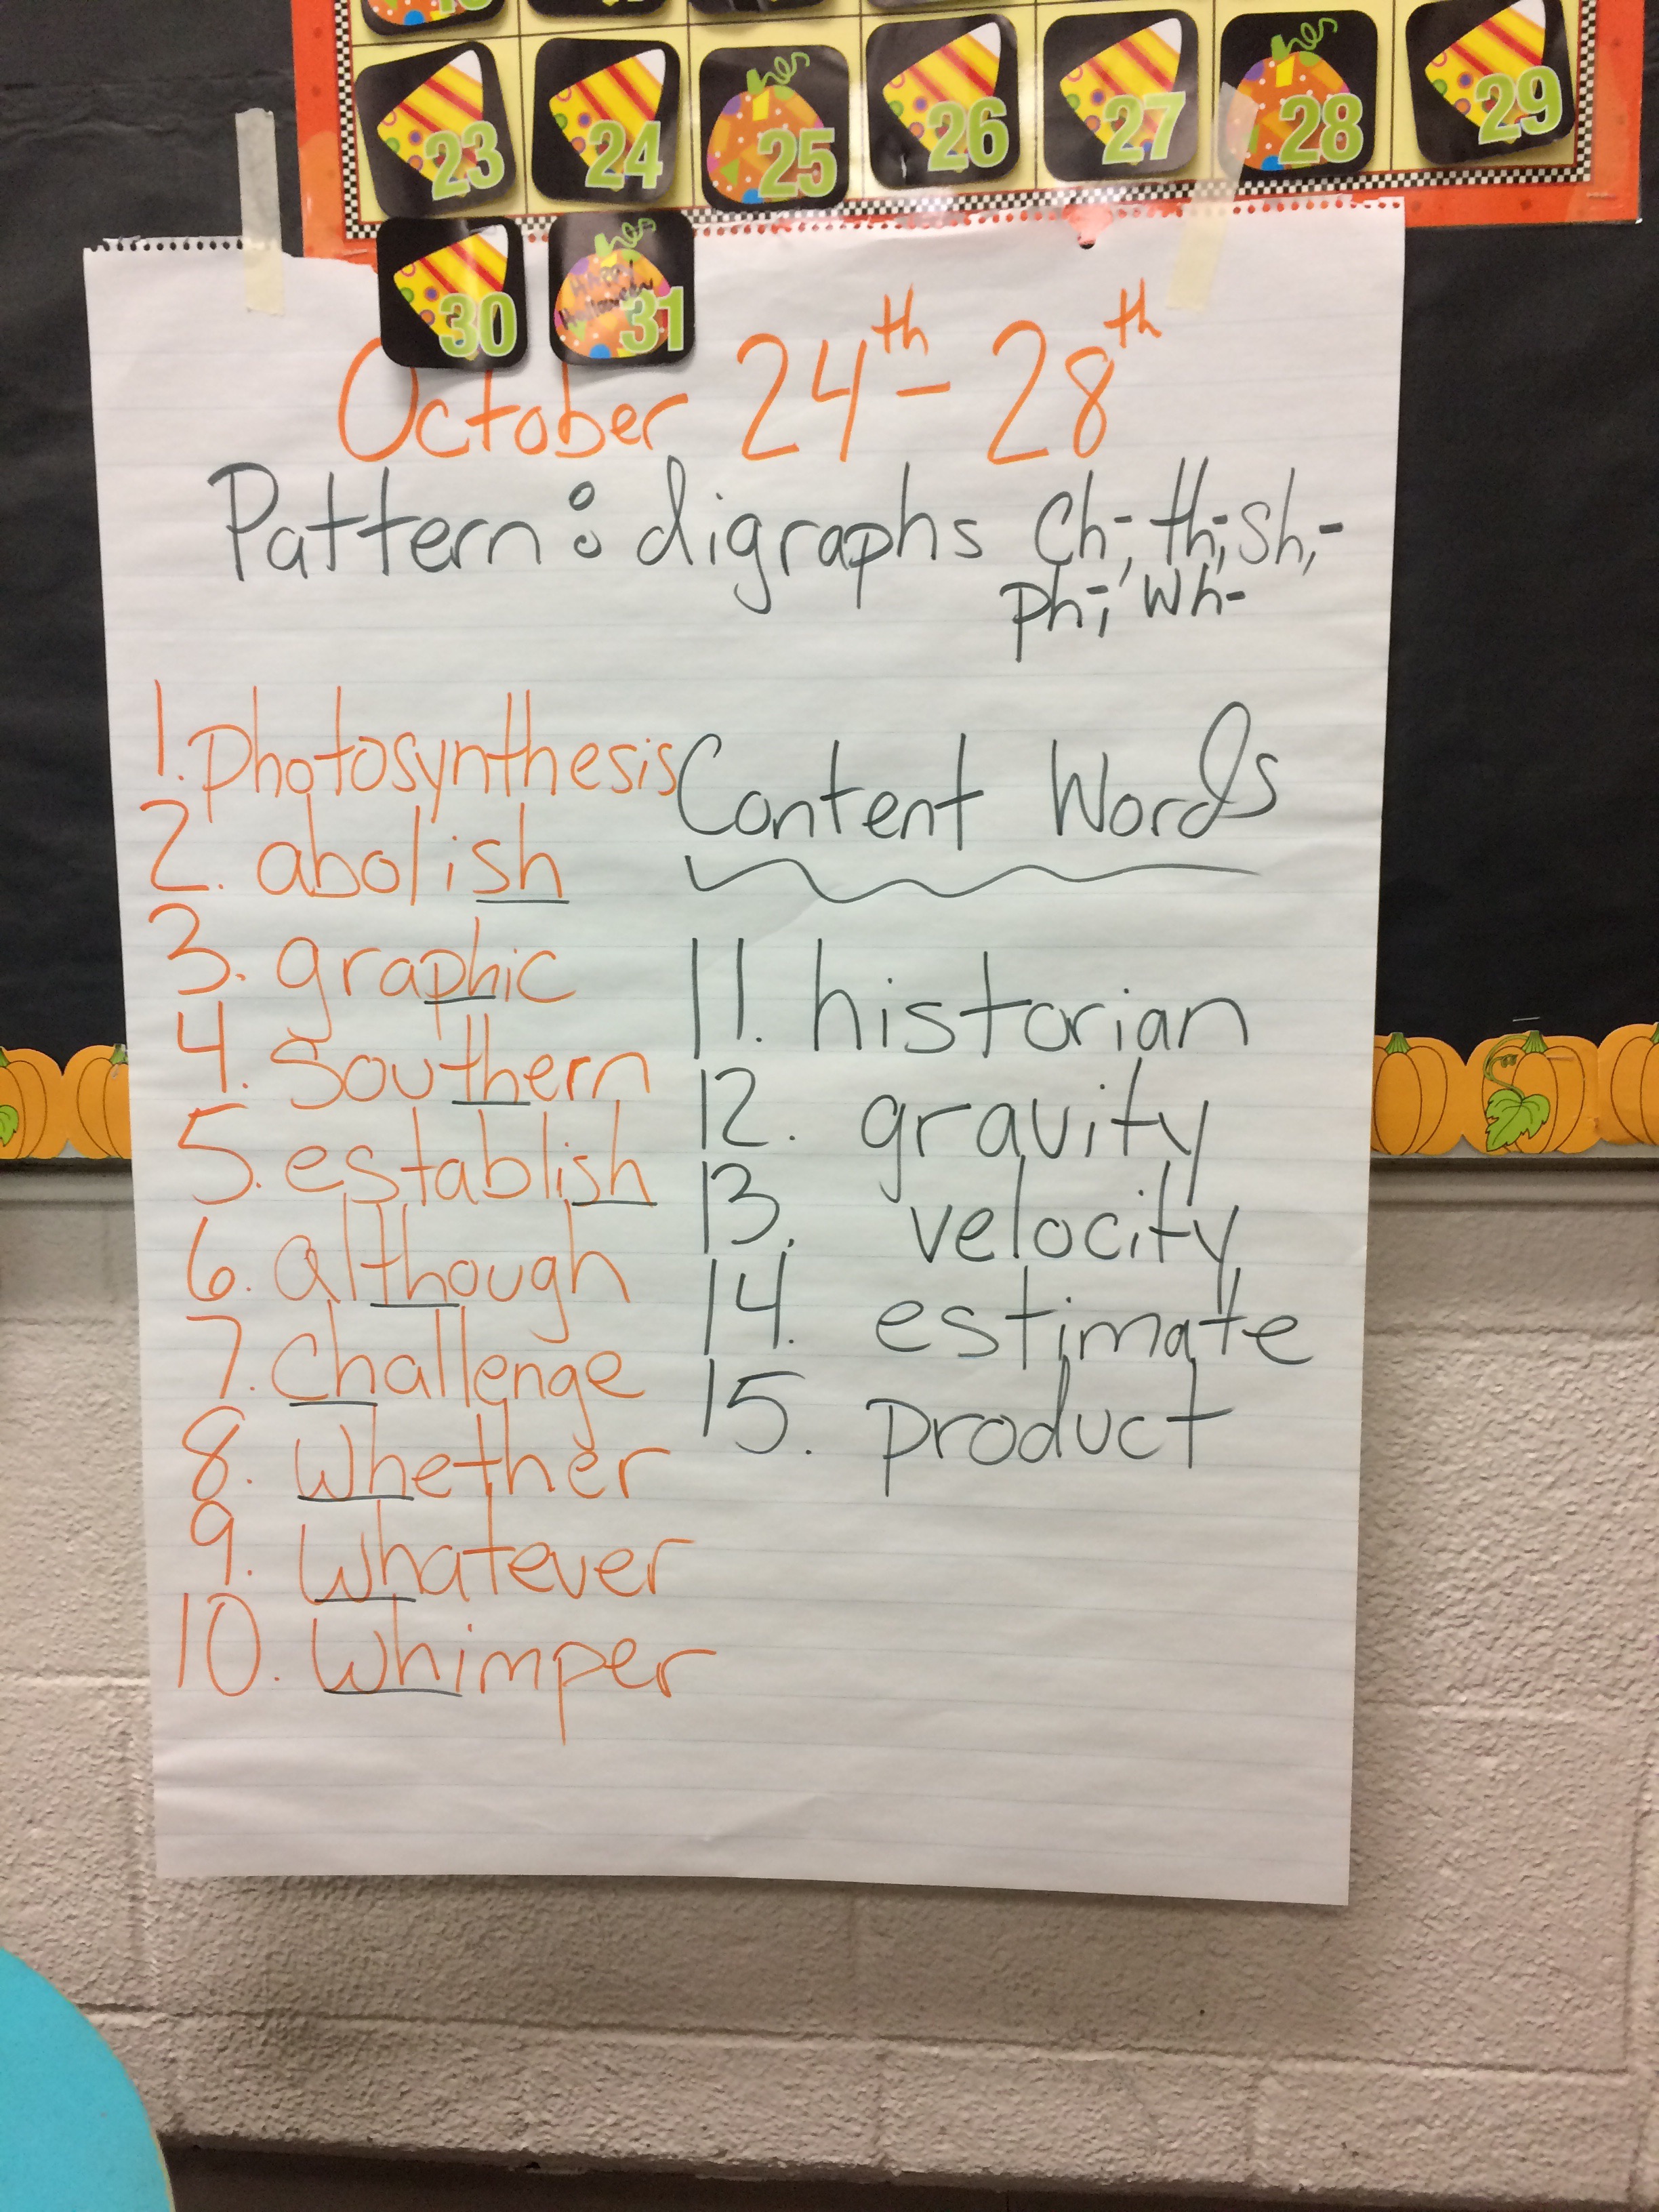 23 24 25 26 27 28 29
30 31
Happy
Halloween
October 24th - 28th
Pattern: digraphs Ch-, th-, Sh-,
ph-, wh-
1. photosynthesis
2. abolish
3. graphic
4. Southern
5. establish
6. although
7. challenge
8. whether
9. whatever
10. whimper
Content Words
11. historian
12. gravity
13. velocity
14. estimate
15. product